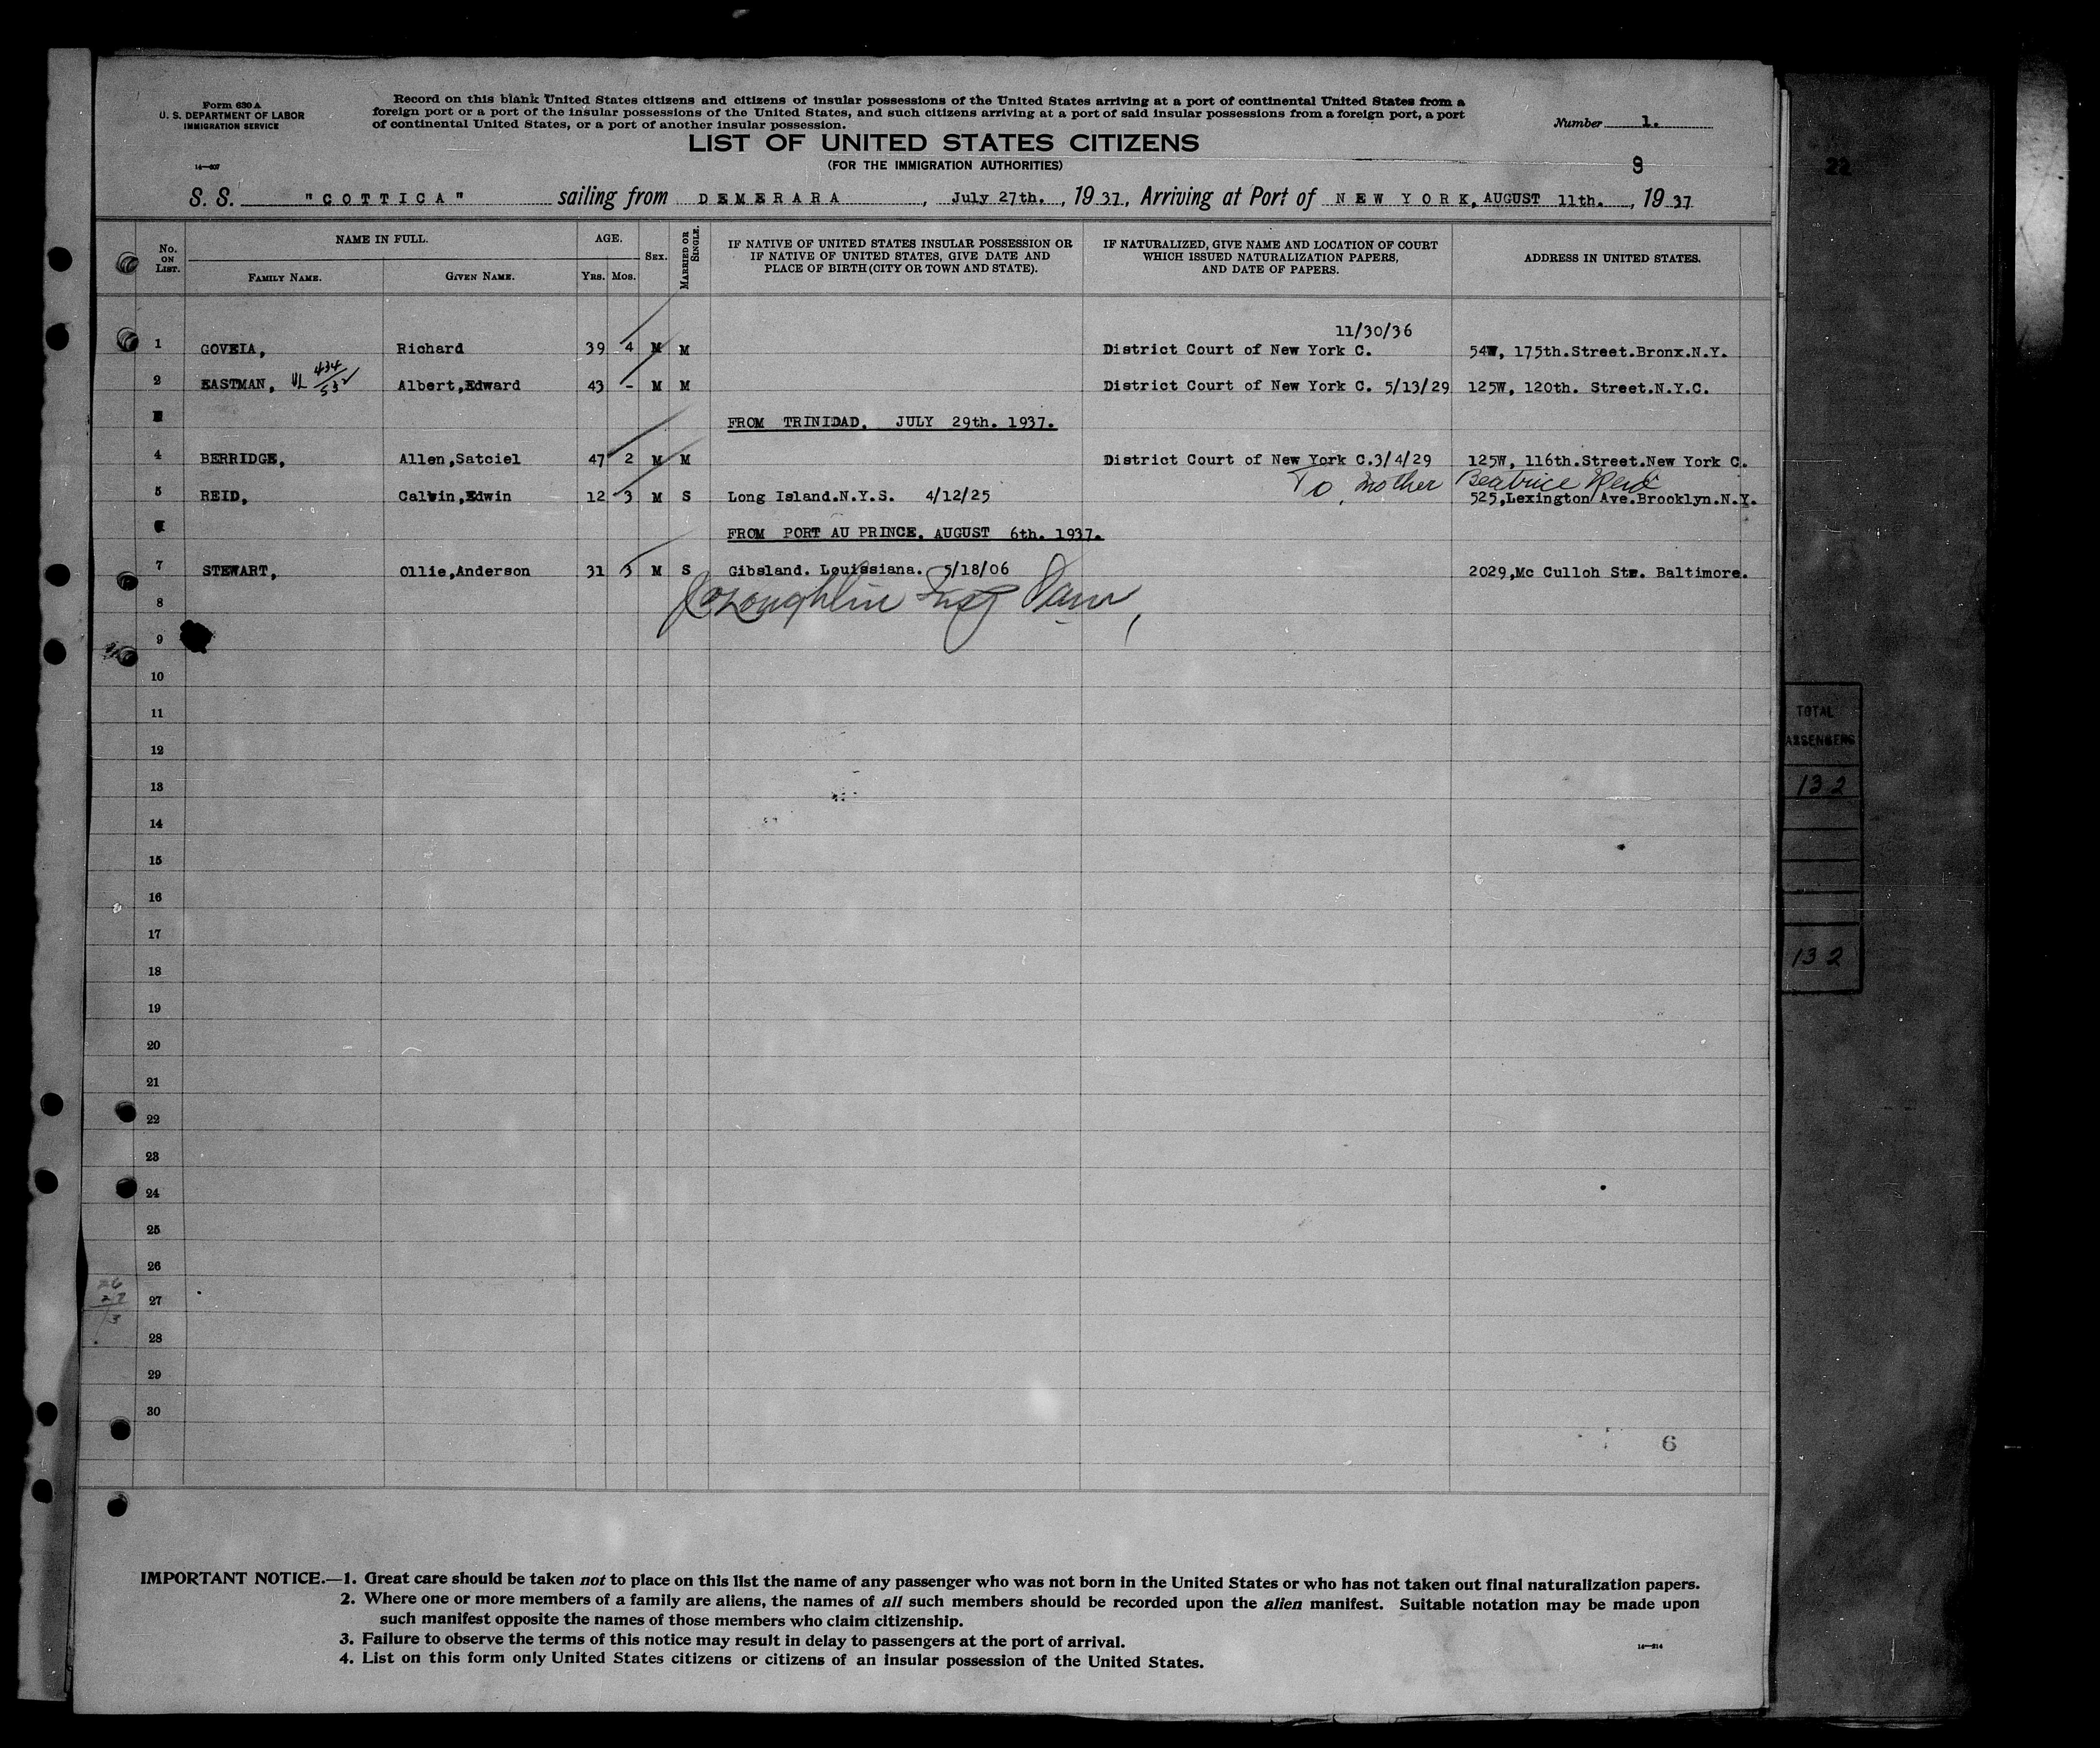 Form 630 A
U. S. DEPARTMENT OF LABOR
IMMIGRATION SERVICE
14—607
Record on this blank United States citizens and citizens of insular possessions of the United States arriving at a port of continental United States from a
foreign port or a port of the insular possessions of the United States, and such citizens arriving at a port of said insular possessions from a foreign port, a port
of continental United States, or a port of another insular possession.
Number 1.
LIST OF UNITED STATES CITIZENS
(FOR THE IMMIGRATION AUTHORITIES)
9
22
S. S. "COTTICA" sailing from DEMERARA, July 27th., 1937, Arriving at Port of NEW YORK, AUGUST 11th., 1937
No. ON LIST.
NAME IN FULL.
FAMILY NAME. GIVEN NAME.
AGE.
YRS. MOS.
SEX.
MARRIED OR SINGLE.
IF NATIVE OF UNITED STATES INSULAR POSSESSION OR
IF NATIVE OF UNITED STATES, GIVE DATE AND
PLACE OF BIRTH (CITY OR TOWN AND STATE).
IF NATURALIZED, GIVE NAME AND LOCATION OF COURT
WHICH ISSUED NATURALIZATION PAPERS,
AND DATE OF PAPERS.
ADDRESS IN UNITED STATES.
11/30/36
1 GOVEIA, Richard 39 4 M M District Court of New York C. 54W, 175th.Street.Bronx.N.Y.
2 EASTMAN, VL 434/532 Albert,Edward 43 - M M District Court of New York C. 5/13/29 125W, 120th. Street.N.Y.C.
FROM TRINIDAD. JULY 29th. 1937.
4 BERRIDGE, Allen,Satciel 47 2 M M District Court of New York C.3/4/29 125W, 116th.Street.New York C.
To Mother Beatrice Reid
5 REID, Calvin,Edwin 12 3 M S Long Island.N.Y.S. 4/12/25 525,Lexington Ave.Brooklyn.N.Y.
FROM PORT AU PRINCE, AUGUST 6th. 1937.
7 STEWART, Ollie,Anderson 31 3 M S Gibsland. Louissiana. 5/18/06 2029,Mc Culloh Ste. Baltimore.
8
9
10
11
12
TOTAL
PASSENGERS
13
132
14
15
16
17
132
18
19
20
21
22
23
24
25
26
27
28
29
30
6
IMPORTANT NOTICE.—1. Great care should be taken not to place on this list the name of any passenger who was not born in the United States or who has not taken out final naturalization papers.
2. Where one or more members of a family are aliens, the names of all such members should be recorded upon the alien manifest. Suitable notation may be made upon
such manifest opposite the names of those members who claim citizenship.
3. Failure to observe the terms of this notice may result in delay to passengers at the port of arrival.
4. List on this form only United States citizens or citizens of an insular possession of the United States.
14—214